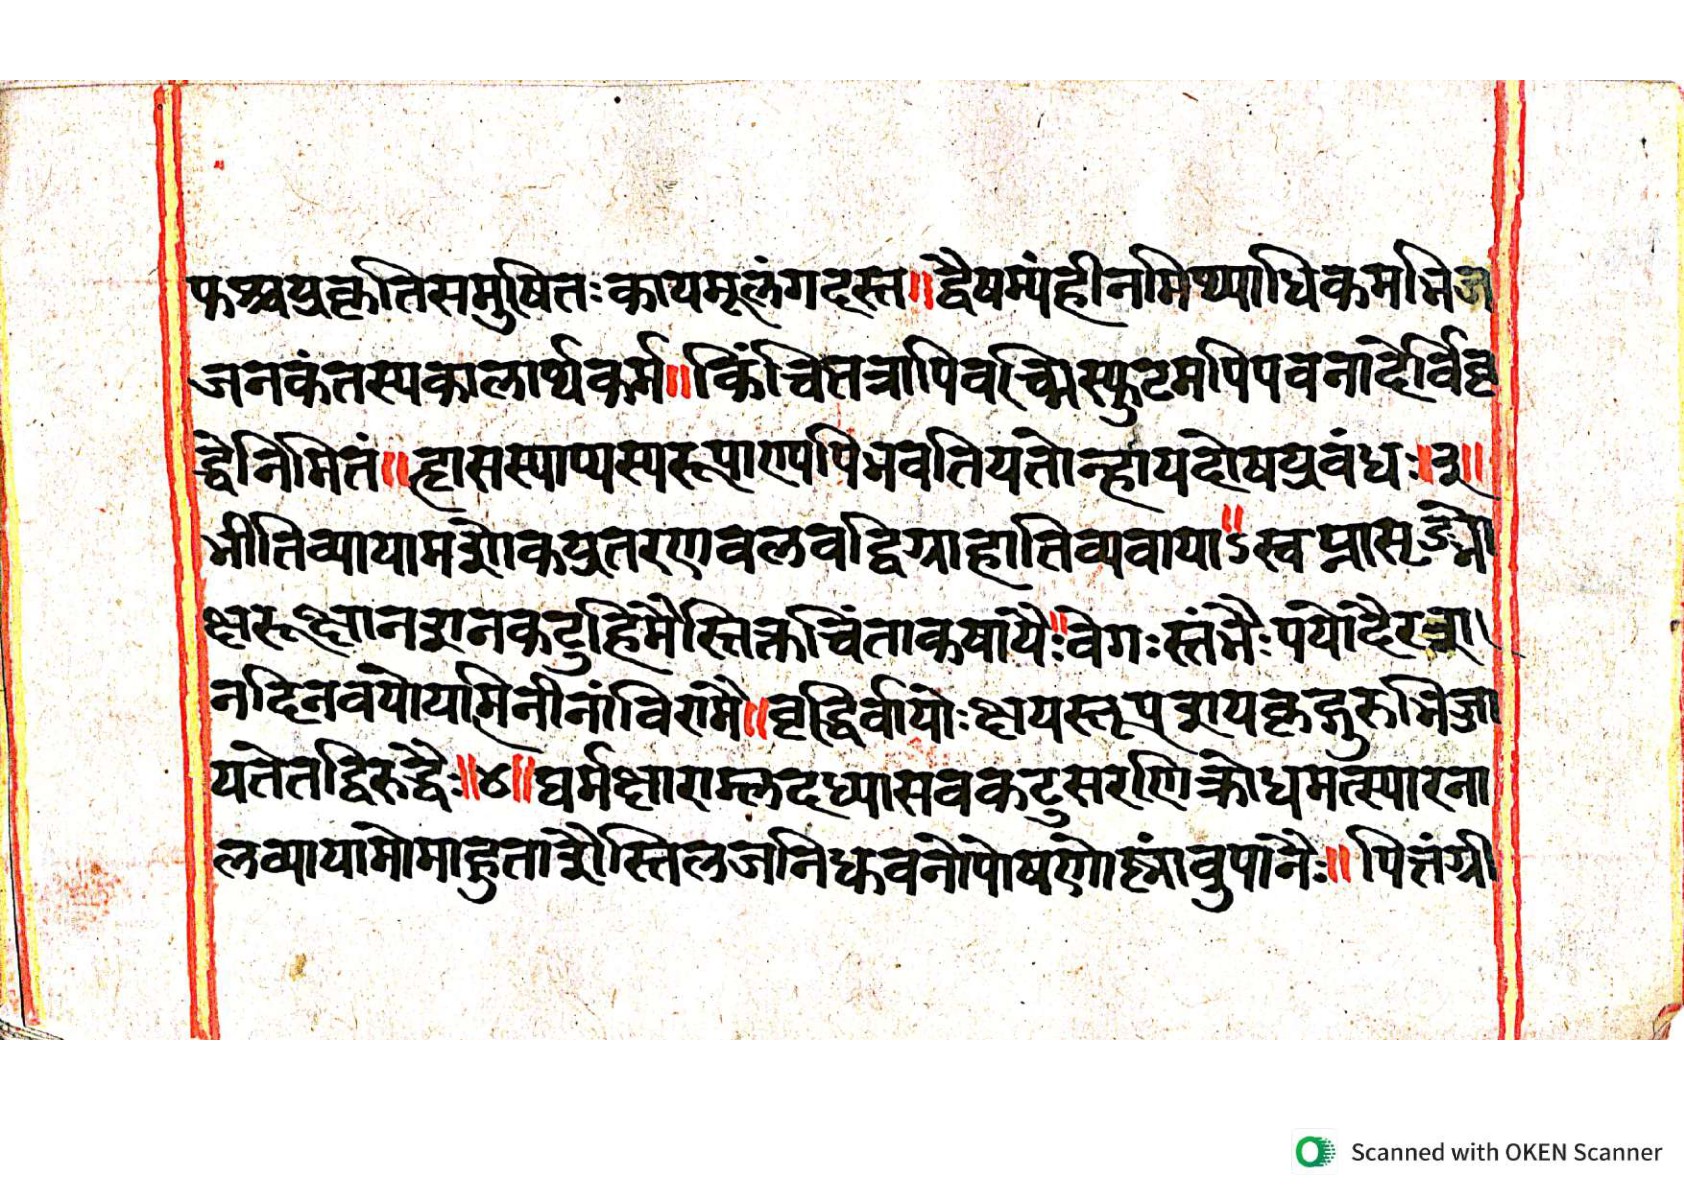 फश्चप्रकृतिसमुषितःकायमूलंगदस्त॥द्वैषम्यंहीनमिथ्याधिकमभिज
जनकंतस्यकालार्थकर्म॥किंचित्तत्रापिवच्मिस्फुटमपिपवनादेर्विवृ
द्धेर्निमितं॥ह्रासस्याप्यस्यरूपाण्यपिभवतियतोन्हायदोषप्रवंधः॥३॥
भीतिव्यायामशोकप्रतरणवलवद्विग्राहातिव्यवाया॥ऽस्वप्नासृङ्मो
क्षरूक्षानशनकटुहिमैस्तिक्तचिंताकषायैः॥वेगःस्तंभैःपयोदैरन्ना।
नदिनवयोयामिनीनांविरामै॥वृद्धिर्वायोःक्षयस्तूपशयकृद्गुरुभिर्जा
यतेतद्विरुद्धैः॥४॥घर्मक्षाराम्लदध्यासवकटुसरणिक्रोधमत्स्यारना
लव्यायामोमाहुताशैस्तिलजनिधुवनोपोषणोष्णांवुपानैः॥पित्तंग्री
Scanned with OKEN Scanner